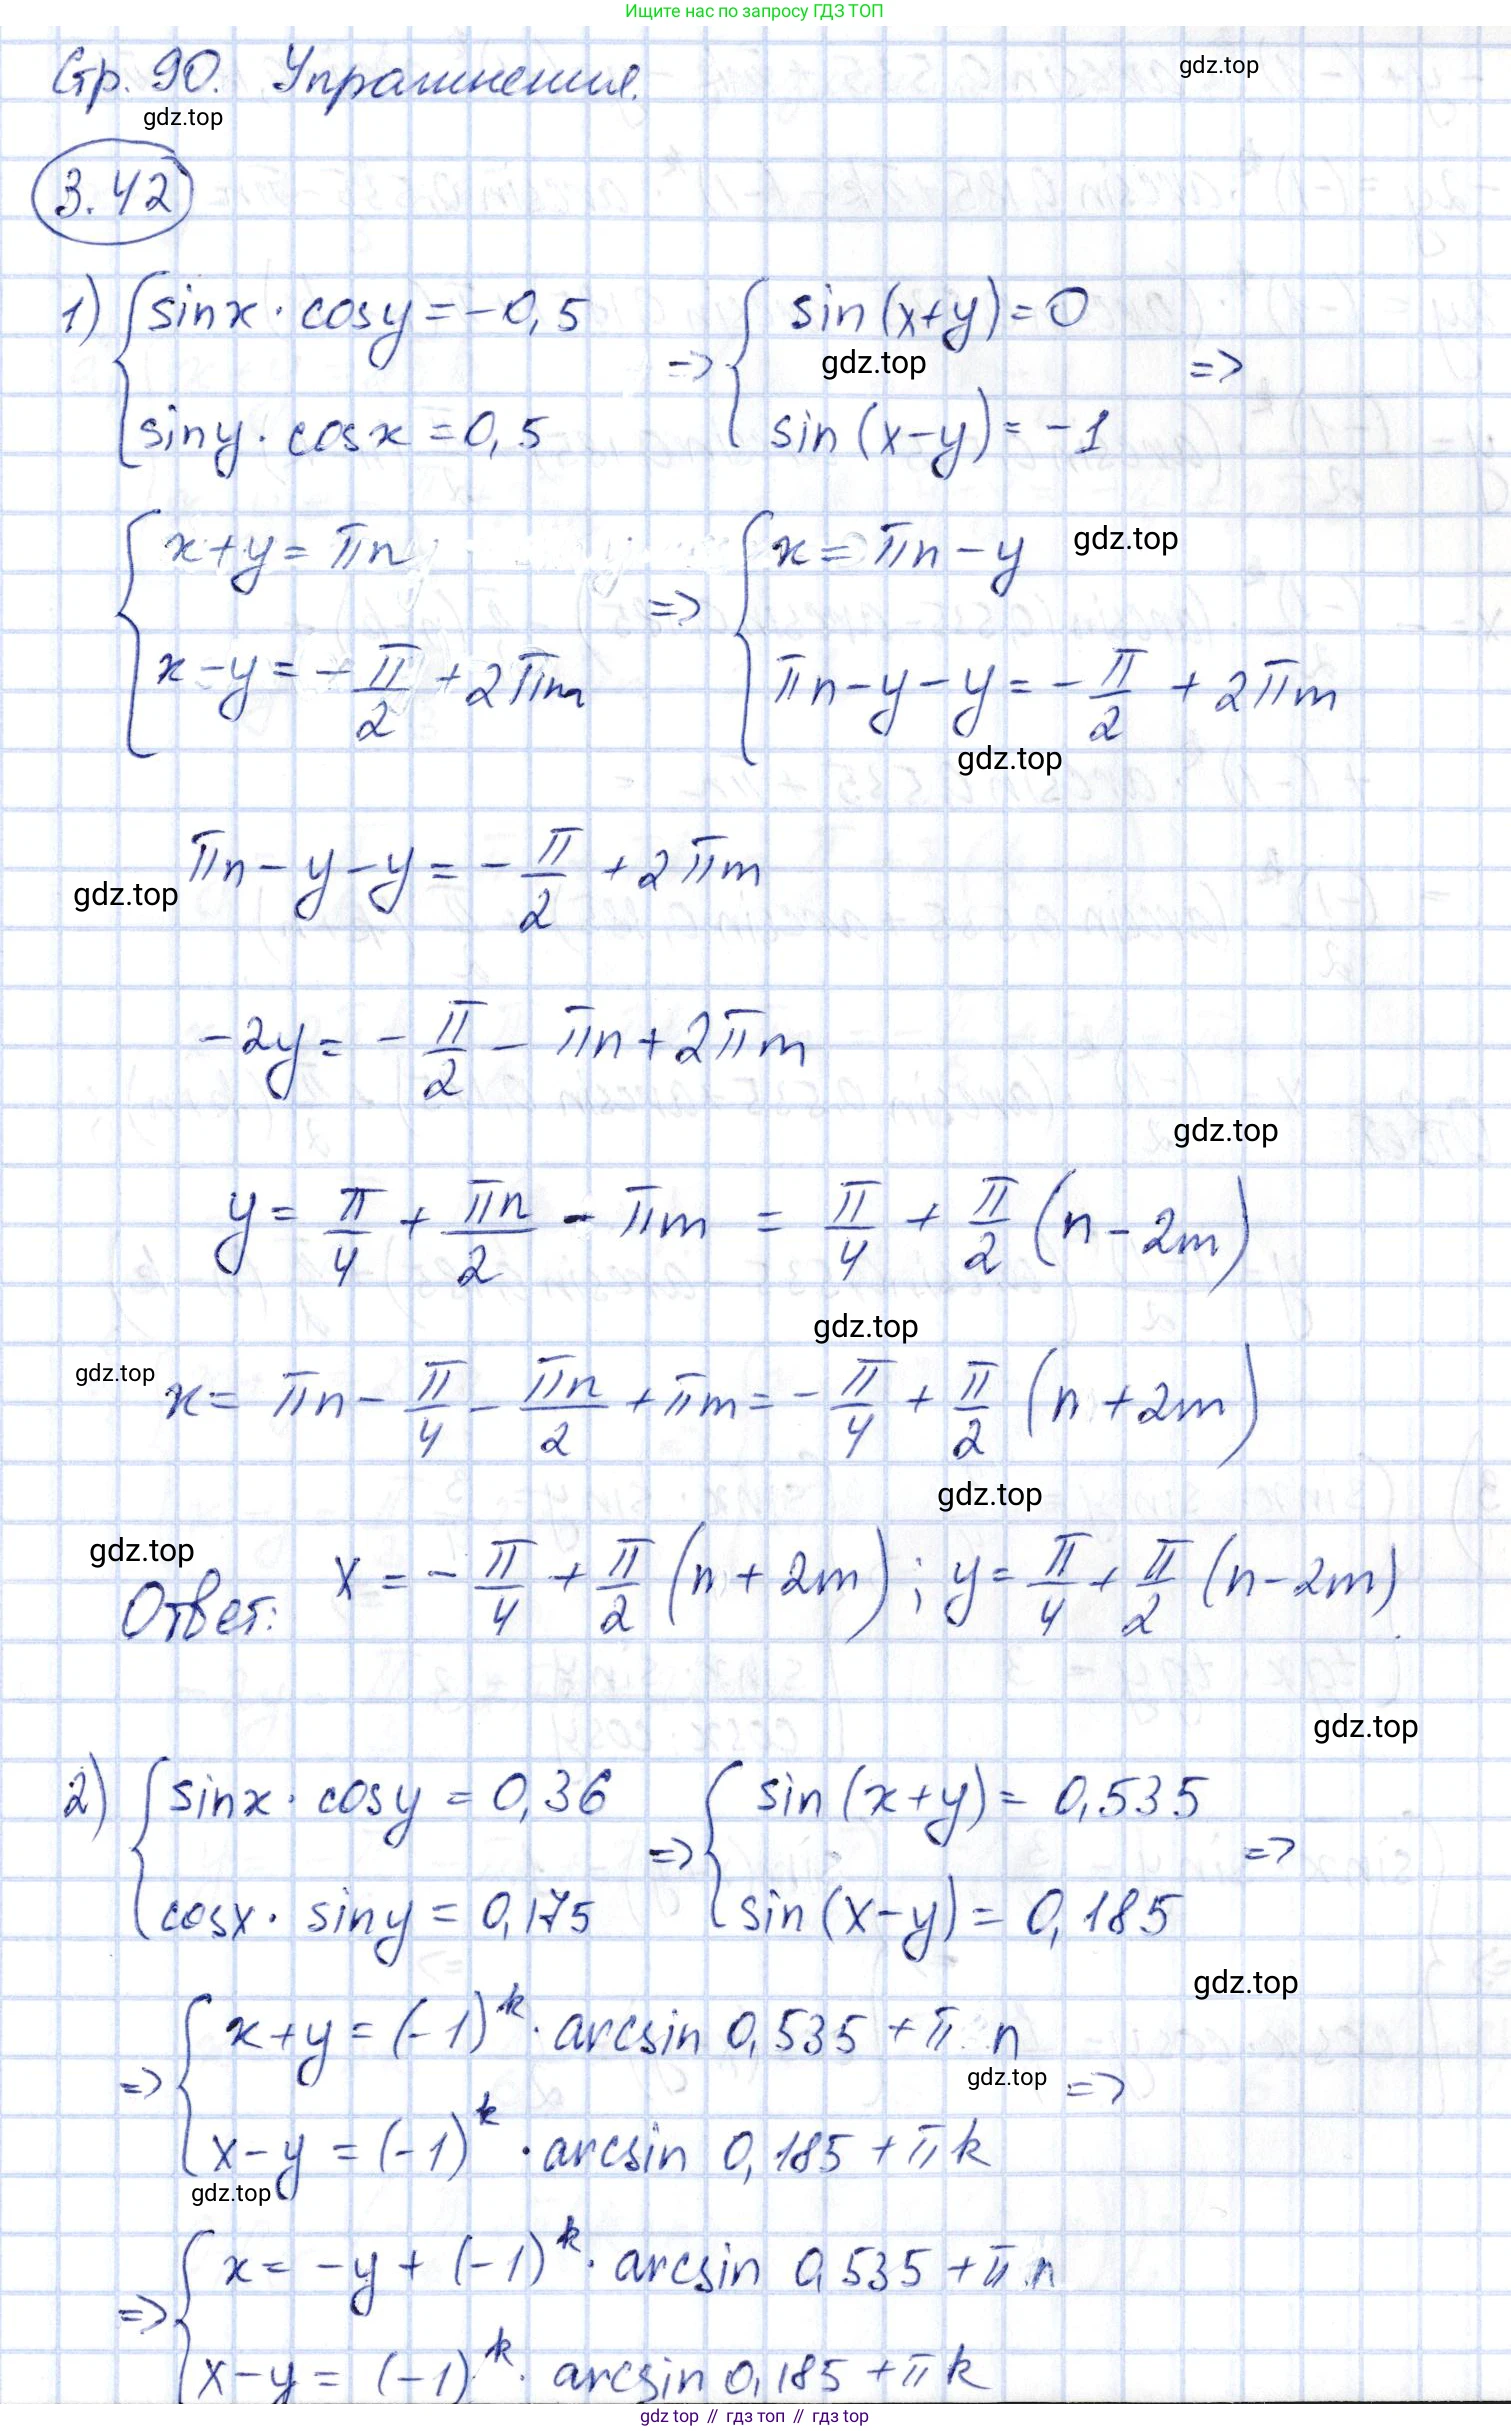 Ищите нас по запросу ГДЗ ТОП
Стр. 90. Упражнения.
gdz.top
gdz.top
3.42
1) { sinx · cosy = -0,5 => { sin(x+y) = 0 =>
gdz.top
{ siny · cosx = 0,5 { sin(x-y) = -1
{ x+y = πn => { x = πn - y
gdz.top
{ x-y = -π/2 + 2πm { πn-y-y = -π/2 + 2πm
gdz.top
πn - y - y = -π/2 + 2πm
gdz.top
-2y = -π/2 - πn + 2πm
gdz.top
y = π/4 + πn/2 - πm = π/4 + π/2 (n - 2m)
gdz.top
gdz.top
x = πn - π/4 - πn/2 + πm = -π/4 + π/2 (n + 2m)
gdz.top
gdz.top
Ответ: x = -π/4 + π/2 (n + 2m); y = π/4 + π/2 (n - 2m).
gdz.top
2) { sinx · cosy = 0,36 => { sin(x+y) = 0,535 =>
{ cosx · siny = 0,175 { sin(x-y) = 0,185
gdz.top
=> { x+y = (-1)^k · arcsin 0,535 + π n =>
gdz.top
{ x-y = (-1)^k · arcsin 0,185 + πk
gdz.top
=> { x = -y + (-1)^k · arcsin 0,535 + πn
{ x-y = (-1)^k · arcsin 0,185 + πk
gdz топ // гдз топ // гдз top